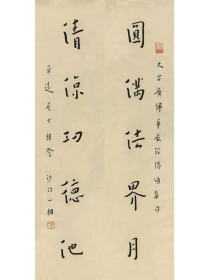 大方廣佛華嚴經偈頌集句
圓滿法界月
清涼功德池
居士 沙門一相